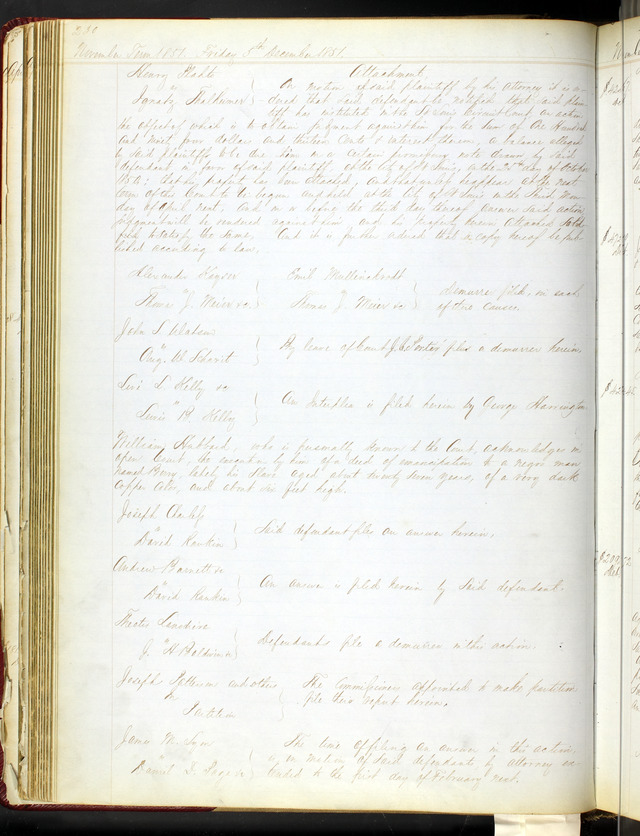 November Term 1851. Friday 5th December 1851.
Henry
Attachment.
On motion of said plaintiff by his attorney it is or-
dered that said defendant be notified that said plain-
tiff has instituted in the St Louis Circuit Court an action
the object of which is to obtain judgment against him for the sum of One Hundred
and ninety four dollars and thirteen Cents & interest thereon, a balance alleged
by said plaintiffs to be due him on a certain promissory note drawn by said
defendant in favor of said plaintiff at the City of St Louis, on the day of October
1851, that his property has been attached, and unless he appear at the next
term of this Court to be begun and held at the City of St Louis on the third Mon-
day of April next, and on or before the third day thereof answer said action
judgment will be rendered against him and his property herein attached sold
to satisfy the same. And it is further ordered that a copy hereof be pub-
lished according to law.
Alexander Kayser
Emil Mallinckrodt
Demurrer filed, in each
Thomas J. Meier &c
Thomas J. Meier &c
of these causes.
John S Watson
By leave of Court J. C. Porter files a demurrer herein.
Levi L Kelly &c
An Interplea is filed herein by George Harrington
Lewis H. Kelley
William Hubbard, who is personally known to the Court, acknowledges in
open Court, the execution by him of a deed of emancipation to a negro man
named Henry, lately his Slave aged about twenty seven years, of a very dark
Copper color, and about six feet high.
Joseph Charless
Said defendant files an answer herein.
David Rankin
Andrew Barnett &c
An answer is filed herein by said defendant.
David Rankin
J. H. Baldwin
Defendants file a demurrer in this action
Joseph and others
The Commissioners appointed to make partition
Partition
file their report herein.
James M.
The time of filing an answer in this action
is, on motion of said defendants, by attorney ex-
Daniel D. Page &c
tended to the first day of February next.